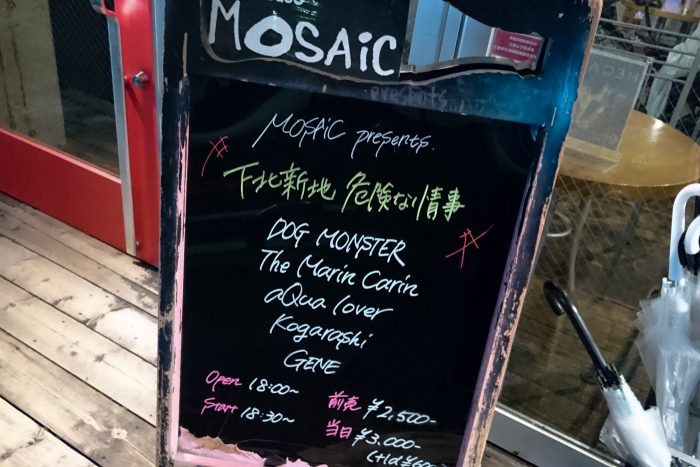 MOSAiC
MOSAiC presents.
下北新地 危険な情事
DOG MONSTER
The Marin Carin
aQua lover
Kogarashi
GENE
Open 18:00~
Start 18:30~
前売 ¥2.500-
当日 ¥3.000-
(+1d ¥600